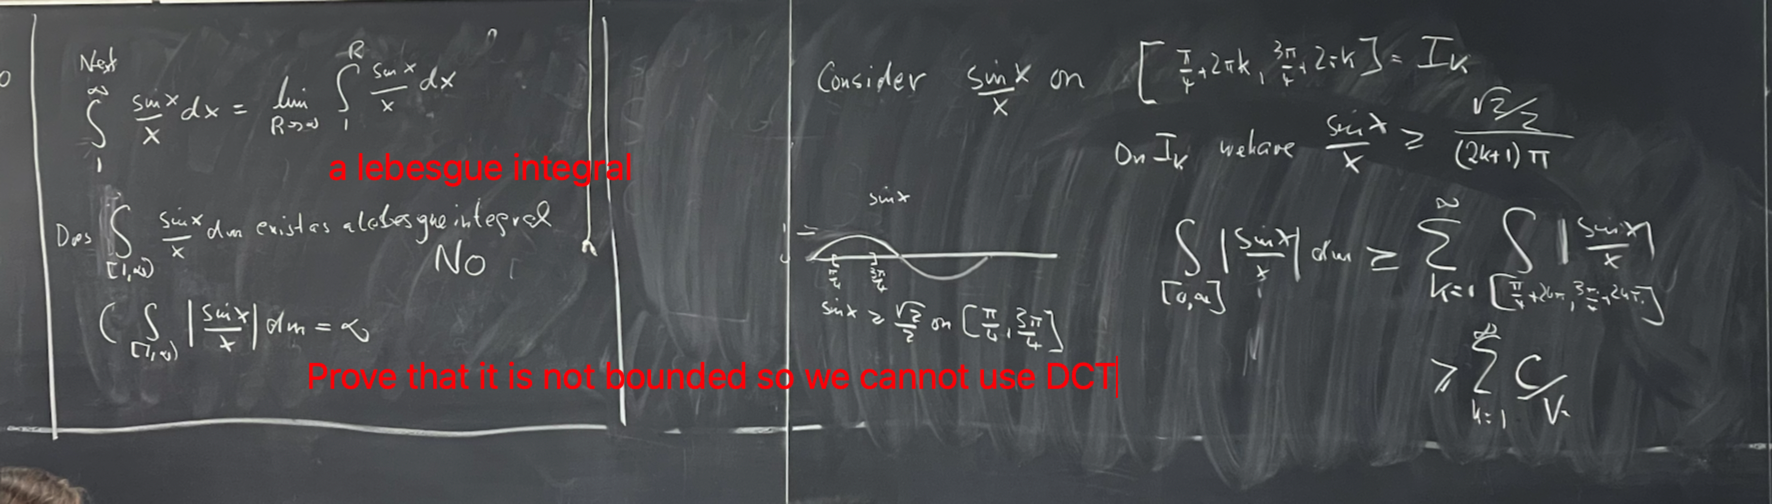 Next
∫_1^∞ sin x/x dx = lim_{R→∞} ∫_1^R sin x/x dx
a lebesgue integral
Does ∫_{[1,∞)} sin x/x dm exist as a lebesgue integral
No
( ∫_{[1,∞)} |sin x/x| dm = ∞
Prove that it is not bounded so we cannot use DCT
Consider sin x/x on [π/4+2πk, 3π/4+2πk] = I_k
On I_k we have sin x/x ≥ (√2/2)/((2k+1)π)
sin x
π/4 3π/4
sin x ≥ √2/2 on [π/4, 3π/4]
∫ |sin x/x| dm ≥ Σ_{k=1}^∞ ∫_{[π/4+2kπ, 3π/4+2kπ]} |sin x/x|
≥ Σ_{k=1}^∞ C/k